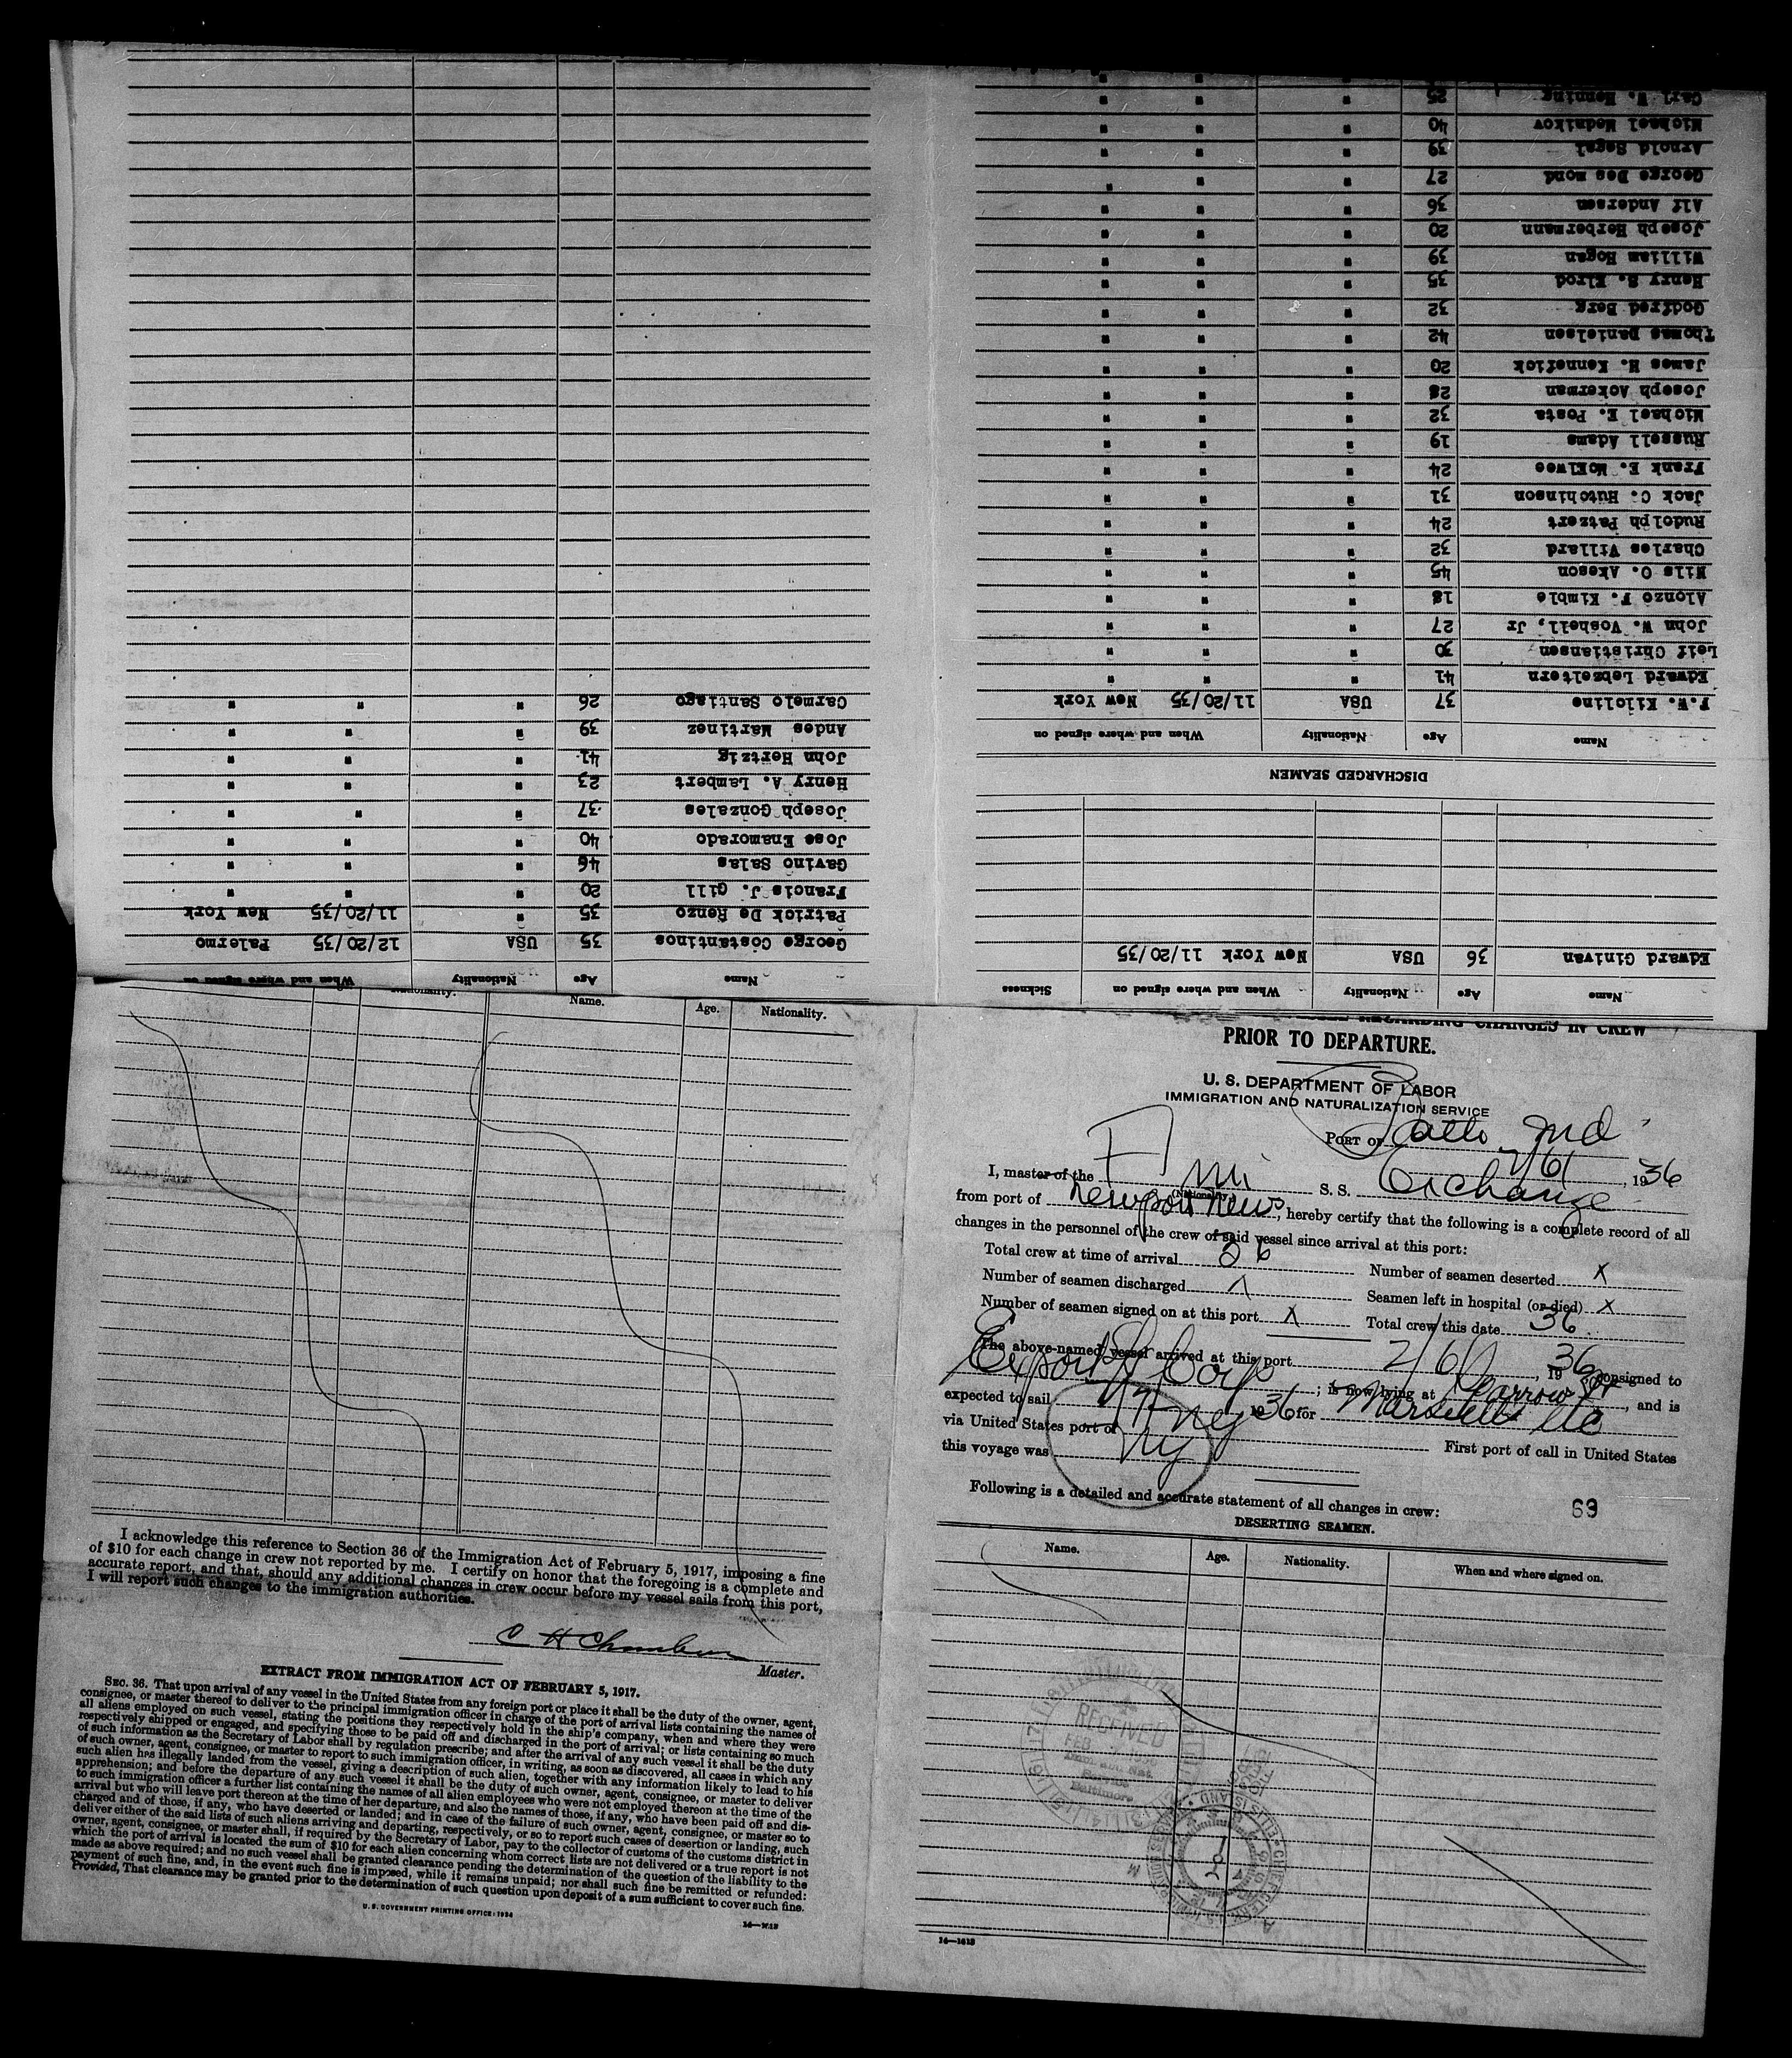 Name Age Nationality When and where signed on Sickness
Edward Ginivan 36 USA New York 11/20/35
DISCHARGED SEAMEN
Name Age Nationality When and where signed on
F.W. Kilcline 37 USA 11/20/35 New York
Edward Lebzeltern 41 " " "
Leif Christiansen 30 " " "
John W. Voshell, Jr 27 " " "
Alonzo F. Kimble 18 " " "
Nils O. Akeson 45 " " "
Charles Villard 32 " " "
Rudolph Patzert 24 " " "
Jack C. Hutchinson 31 " " "
Frank E. McElwee 24 " " "
Russell Adams 19 " " "
Michael E. Posta 32 " " "
Joseph Ackerman 28 " " "
James H. Kennefick 20 " " "
Thomas Danielsen 42 " " "
Godfred Berg 32 " " "
Henry S. Elrod 35 " " "
William Hogan 39 " " "
Joseph Herbermann 20 " " "
Alf Andersen 36 " " "
George Des mond 27 " " "
Arnold Segal 39 " " "
Michael Mednikov 40 " " "
Carl W. Henning 25 " " "
Name Age Nationality When and where signed on
George Costantinos 35 USA 12/20/35 Palermo
Patrick De Renzo 35 " 11/20/35 New York
Francis J. Gill 20 " " "
Gavino Salas 46 " " "
Jose Enamorado 40 " " "
Joseph Gonzales 37 " " "
Henry A. Lambert 23 " " "
John Hertzig 41 " " "
Andes Martinez 39 " " "
Carmelo Santiago 26 " " "
Nationality. Name. Age. Nationality.
I acknowledge this reference to Section 36 of the Immigration Act of February 5, 1917, imposing a fine
of $10 for each change in crew not reported by me. I certify on honor that the foregoing is a complete and
accurate report, and that, should any additional changes in crew occur before my vessel sails from this port,
I will report such changes to the immigration authorities.
C H Chambers
Master.
EXTRACT FROM IMMIGRATION ACT OF FEBRUARY 5, 1917.
SEC. 36. That upon arrival of any vessel in the United States from any foreign port or place it shall be the duty of the owner, agent,
consignee, or master thereof to deliver to the principal immigration officer in charge of the port of arrival lists containing the names of
all aliens employed on such vessel, stating the positions they respectively hold in the ship's company, when and where they were
respectively shipped or engaged, and specifying those to be paid off and discharged in the port of arrival; or lists containing so much
of such information as the Secretary of Labor shall by regulation prescribe; and after the arrival of any such vessel it shall be the duty
of such owner, agent, consignee, or master to report to such immigration officer, in writing, as soon as discovered, all cases in which any
such alien has illegally landed from the vessel, giving a description of such alien, together with any information likely to lead to his
apprehension; and before the departure of any such vessel it shall be the duty of such owner, agent, consignee, or master to deliver
to such immigration officer a further list containing the names of all alien employees who were not employed thereon at the time of the
arrival but who will leave port thereon at the time of her departure, and also the names of those, if any, who have been paid off and dis-
charged and of those, if any, who have deserted or landed; and in case of the failure of such owner, agent, consignee, or master so to
deliver either of the said lists of such aliens arriving and departing, respectively, or so to report such cases of desertion or landing, such
owner, agent, consignee, or master shall, if required by the Secretary of Labor, pay to the collector of customs of the customs district in
which the port of arrival is located the sum of $10 for each alien concerning whom correct lists are not delivered or a true report is not
made as above required; and no such vessel shall be granted clearance pending the determination of the question of the liability to the
payment of such fine, and, in the event such fine is imposed, while it remains unpaid; nor shall such fine be remitted or refunded:
Provided, That clearance may be granted prior to the determination of such question upon deposit of a sum sufficient to cover such fine.
U. S. GOVERNMENT PRINTING OFFICE: 1934
REGARDING CHANGES IN CREW
PRIOR TO DEPARTURE.
U. S. DEPARTMENT OF LABOR
IMMIGRATION AND NATURALIZATION SERVICE
PORT OF Balto Md
2/6/, 1936
I, master of the Am S. S. Exchange
(Nationality)
from port of Newport News, hereby certify that the following is a complete record of all
changes in the personnel of the crew of said vessel since arrival at this port:
Total crew at time of arrival 36 Number of seamen deserted X
Number of seamen discharged X Seamen left in hospital (or died) X
Number of seamen signed on at this port X Total crew this date 36
The above-named vessel arrived at this port 2/6/, 1936 consigned to
Export SS Corp; is now lying at Barrow St, and is
expected to sail 2/7 1936 for Marseilles etc
via United States port of NY First port of call in United States
this voyage was NY
Following is a detailed and accurate statement of all changes in crew: 69
DESERTING SEAMEN.
Name. Age. Nationality. When and where signed on.
RECEIVED
FEB
Baltimore
14—1618